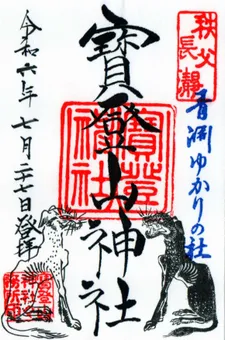 秩父
長瀞
青淵ゆかりの社
寳登山神社
寳登山神社
令和六年七月二十七日登拝